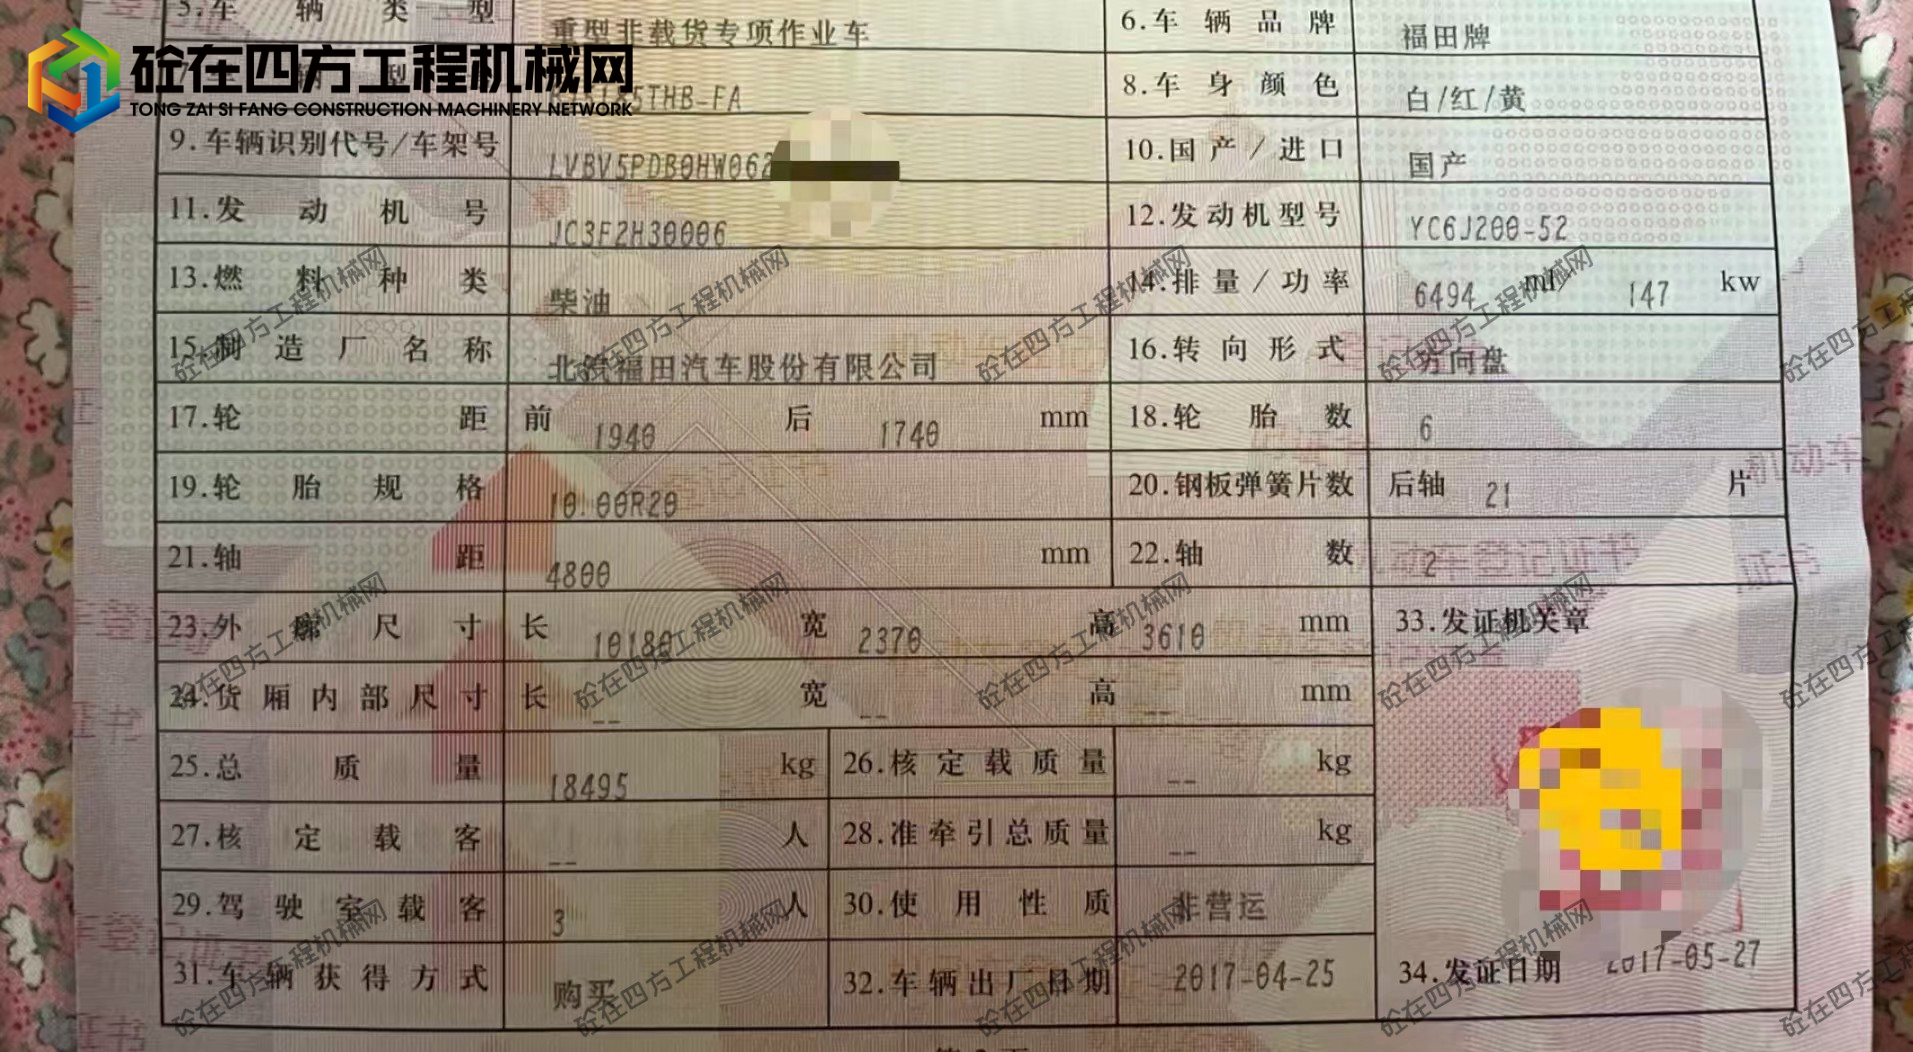 5.车辆类型 重型非载货专项作业车 6.车辆品牌 福田牌
砼在四方工程机械网
TONG ZAI SI FANG CONSTRUCTION MACHINERY NETWORK
5THB-FA 8.车身颜色 白/红/黄
9.车辆识别代号/车架号 LVBV5PDB0HW062 10.国产/进口 国产
11.发动机号 JC3F2H30006 12.发动机型号 YC6J200-52
13.燃料种类 柴油 14.排量/功率 6494 ml/ 147 kw
15.制造厂名称 北汽福田汽车股份有限公司 16.转向形式 方向盘
17.轮距 前 1940 后 1740 mm 18.轮胎数 6
19.轮胎规格 10.00R20 20.钢板弹簧片数 后轴 21 片
21.轴距 4800 mm 22.轴数 2
23.外廓尺寸 长 10180 宽 2370 高 3610 mm 33.发证机关章
24.货厢内部尺寸 长 -- 宽 -- 高 -- mm
25.总质量 18495 kg 26.核定载质量 -- kg
27.核定载客 -- 人 28.准牵引总质量 -- kg
29.驾驶室载客 3 人 30.使用性质 非营运
31.车辆获得方式 购买 32.车辆出厂日期 2017-04-25 34.发证日期 2017-05-27